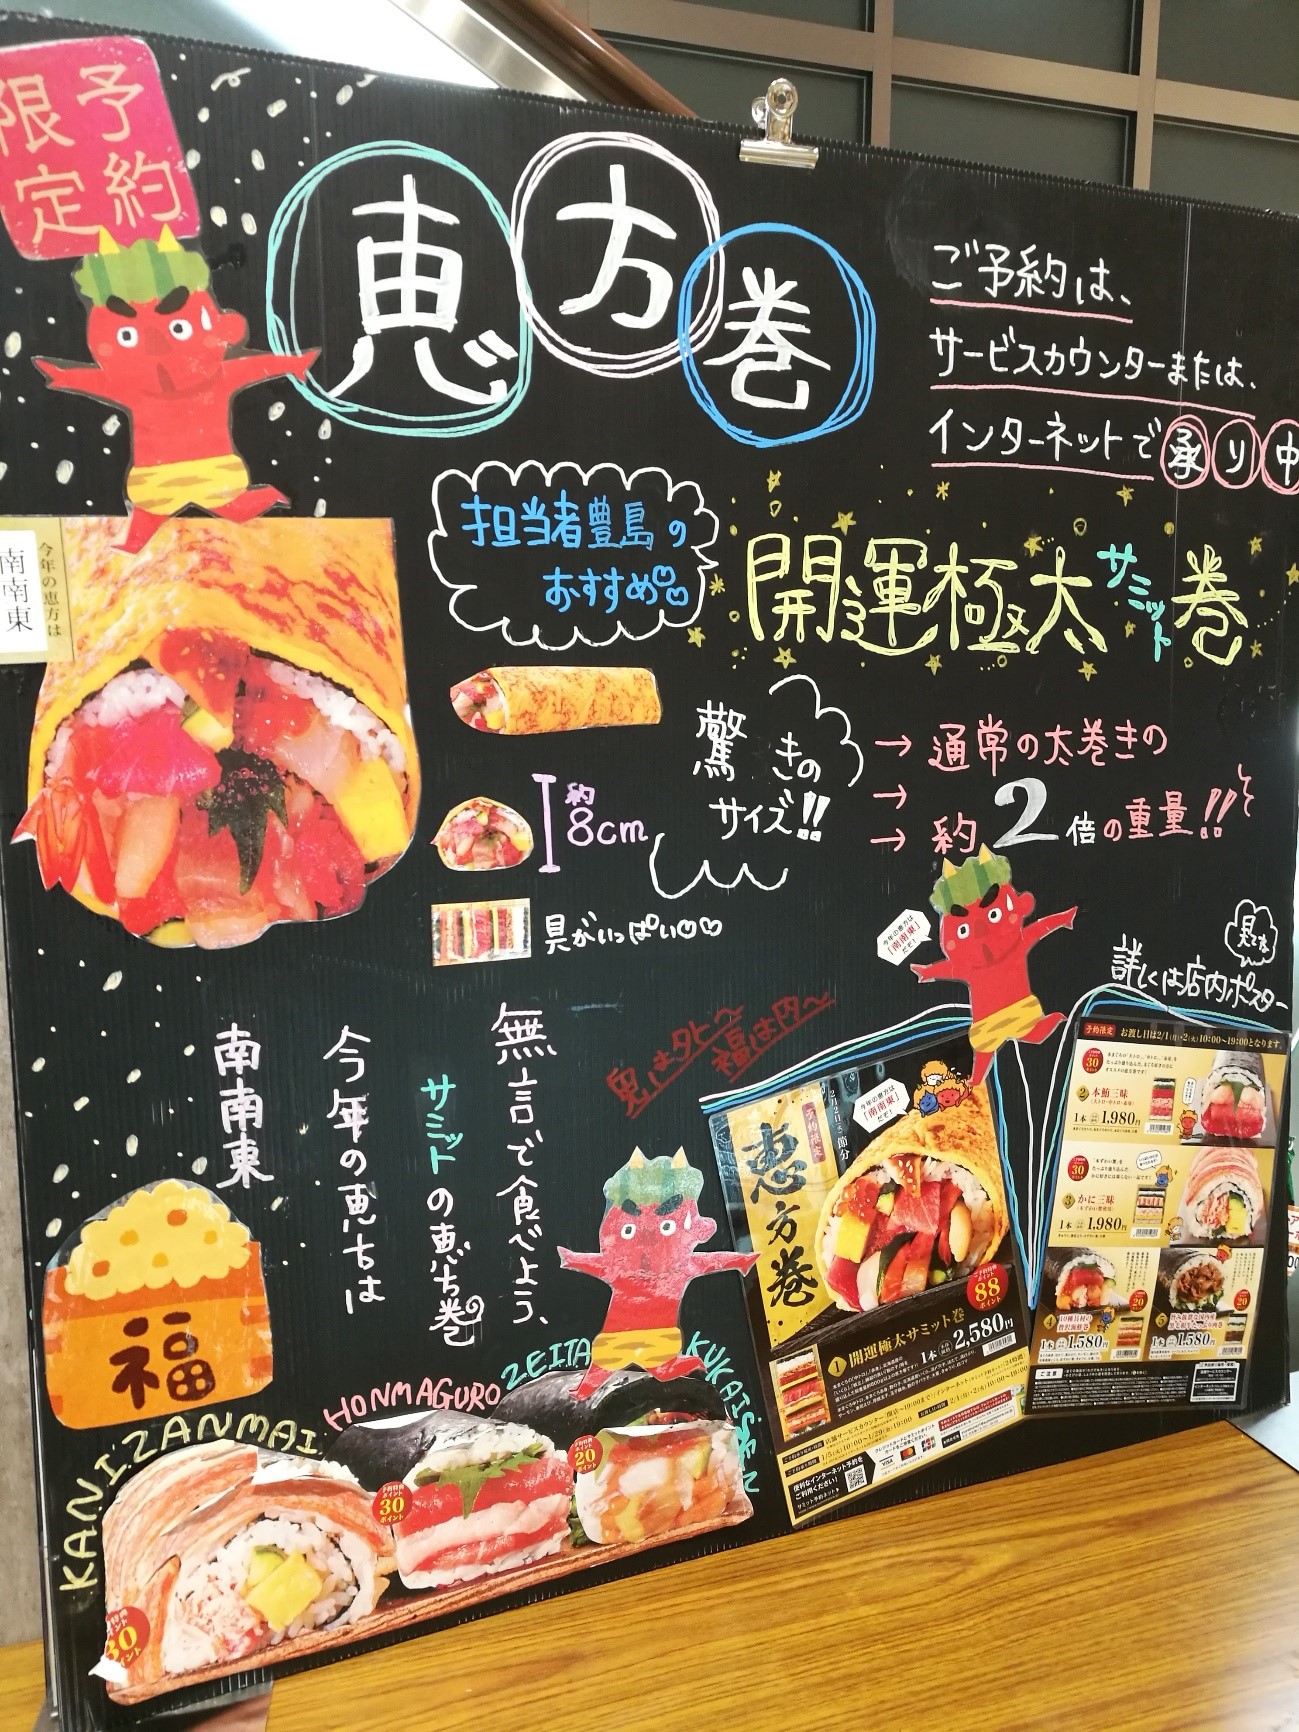 予約
限定
恵方巻
ご予約は、
サービスカウンターまたは、
インターネットで承り中
担当者豊島の
おすすめ
開運極太サミット巻
今年の恵方は
南南東
驚きの
サイズ!!
→ 通常の太巻きの
→
→ 約2倍の重量!!
約
8cm
具がいっぱい♡♡
今年の恵方は
「南南東」
だぞ!
見てネ
詳しくは店内ポスター
鬼は外〜
福は内〜
無言で食べよう、
サミットの恵方巻
今年の恵方は
南南東
福
KANIZANMAI
HONMAGURO
ZEITA
KUKAISEN
予約特典
30
ポイント
予約特典
20
ポイント
30
予約限定
2月2日 節分
今年の恵方は
「南南東」
だぞ!
恵方巻
88
ポイント
1 開運極太サミット巻
1本 2,580円
便利なインターネット予約を
ご利用ください!
VISA
JCB
予約限定 お渡し日は2/1(日)・2(火)10:00〜19:00となります。
30
2 本鮪三昧
1本 1,980円
30
3 かに三昧
1本 1,980円
20
4 10種具材の
贅沢海鮮巻
1本 1,580円
20
5
1本 1,580円
ご注意